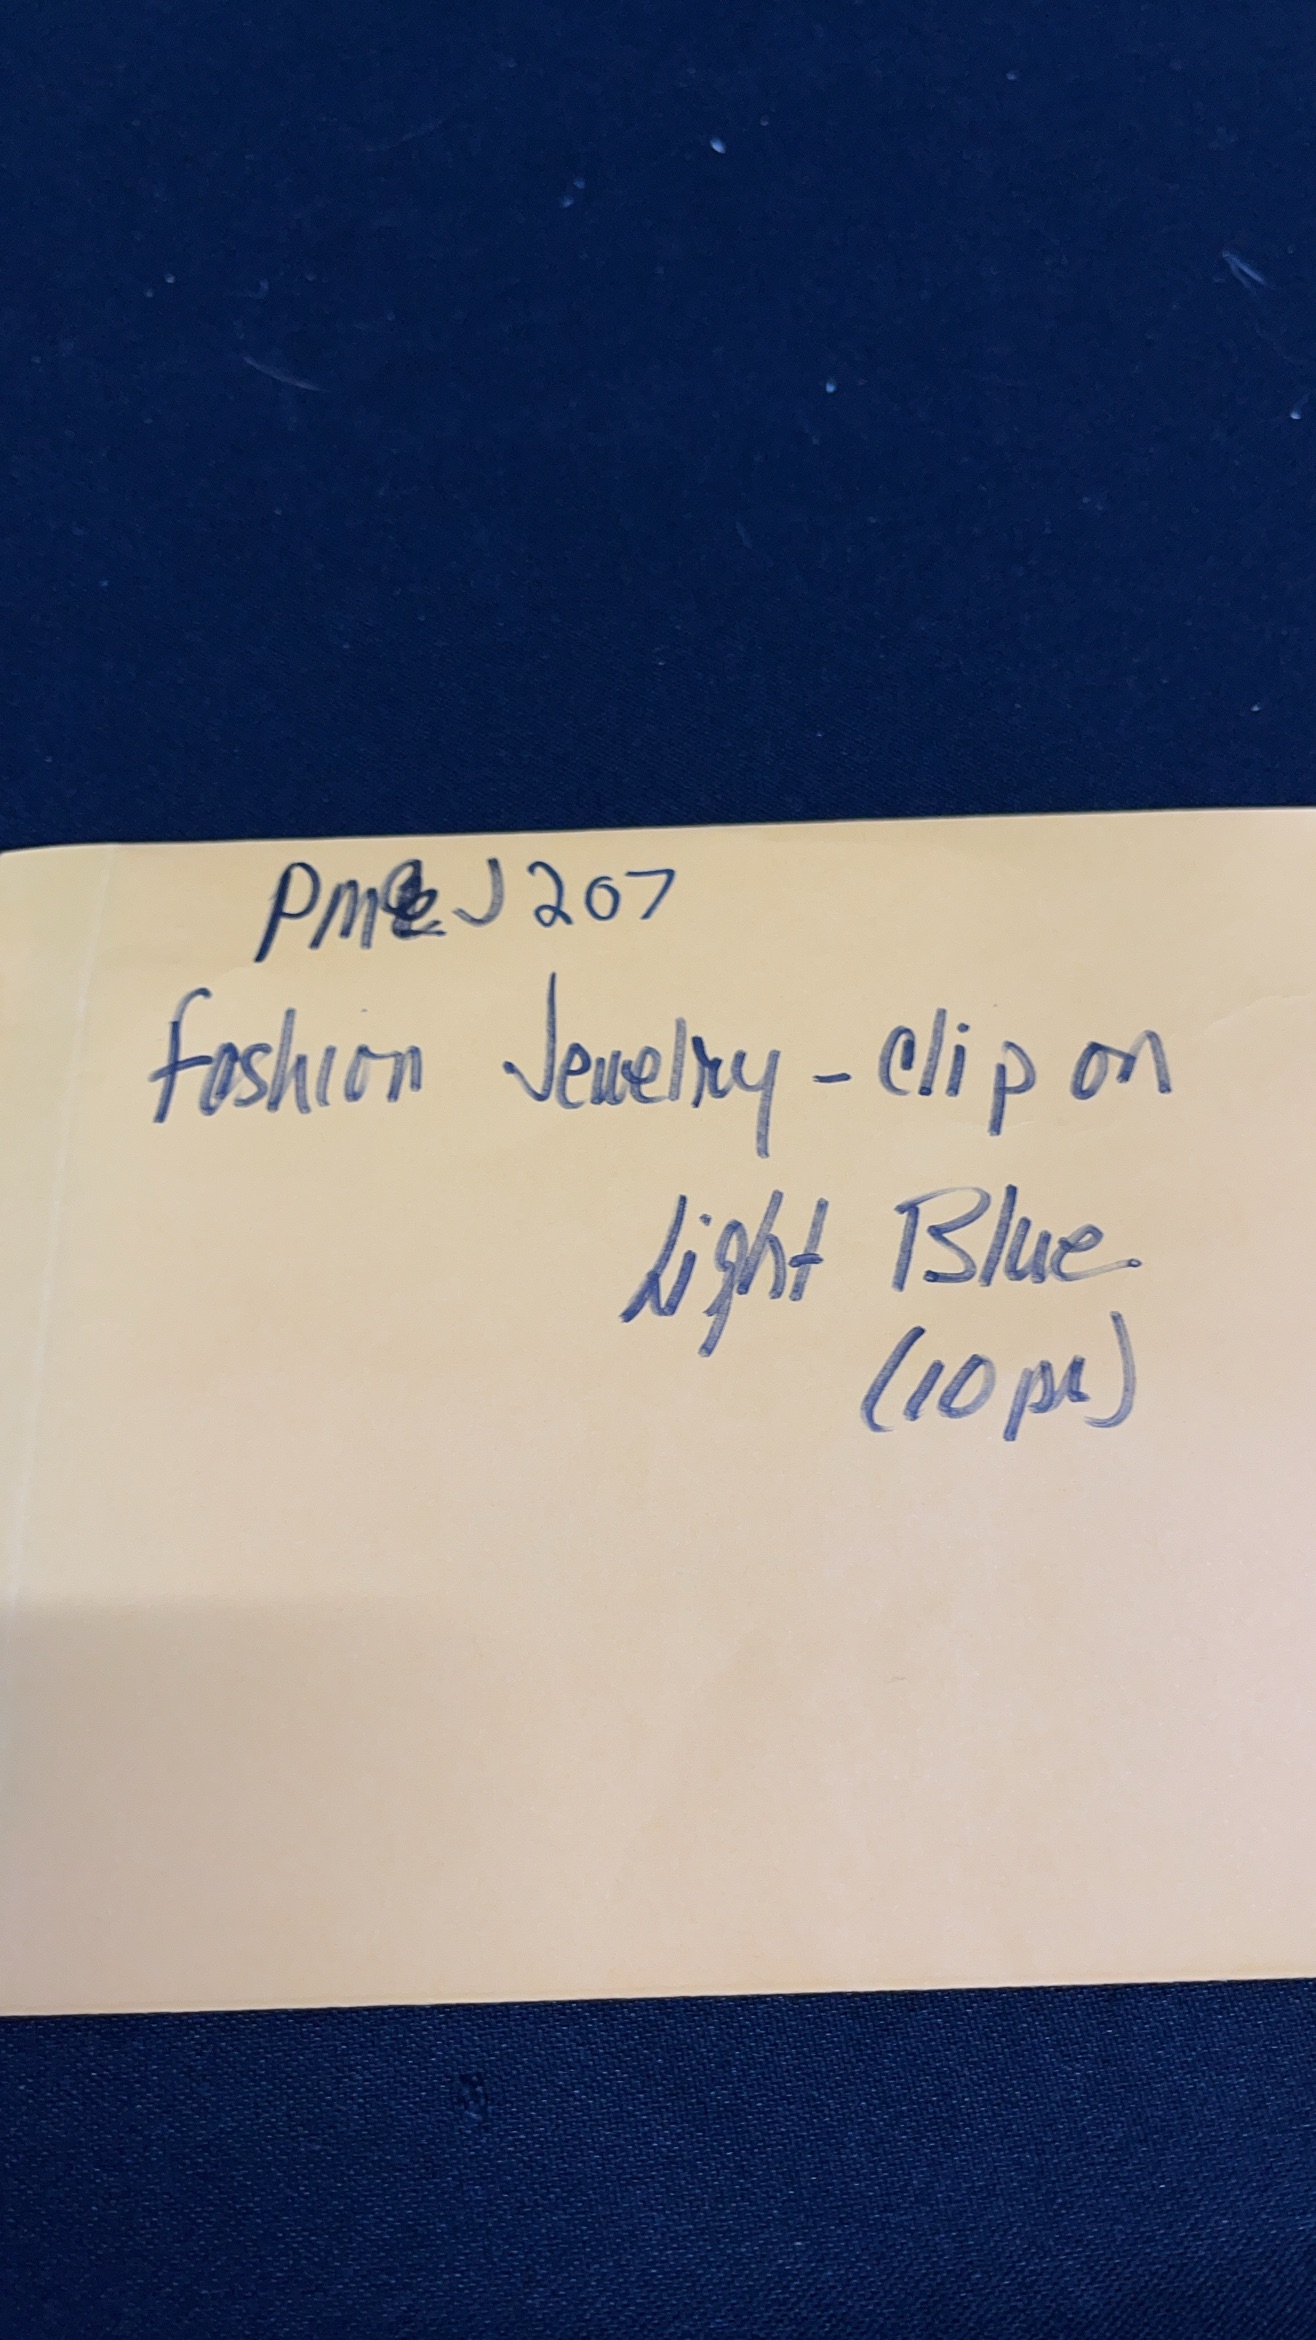 J207
Fashion Jewelry - Clip on
Light Blue
(10